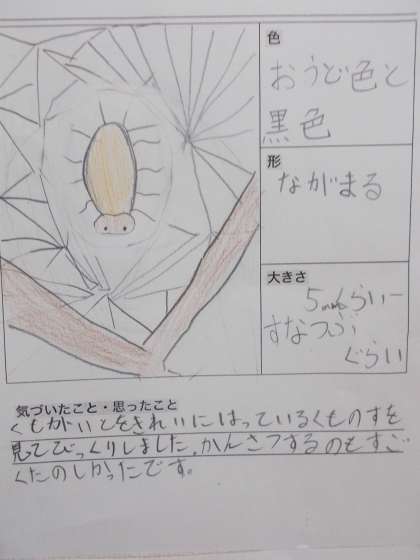 色
おうど色と
黒色
形
ながまる
大きさ
5mmくらいー
すなつぶ
ぐらい
気づいたこと・思ったこと
くもがいとをきれいにはっているくものすを
見てびっくりしました。かんさつするのもすご
くたのしかったです。